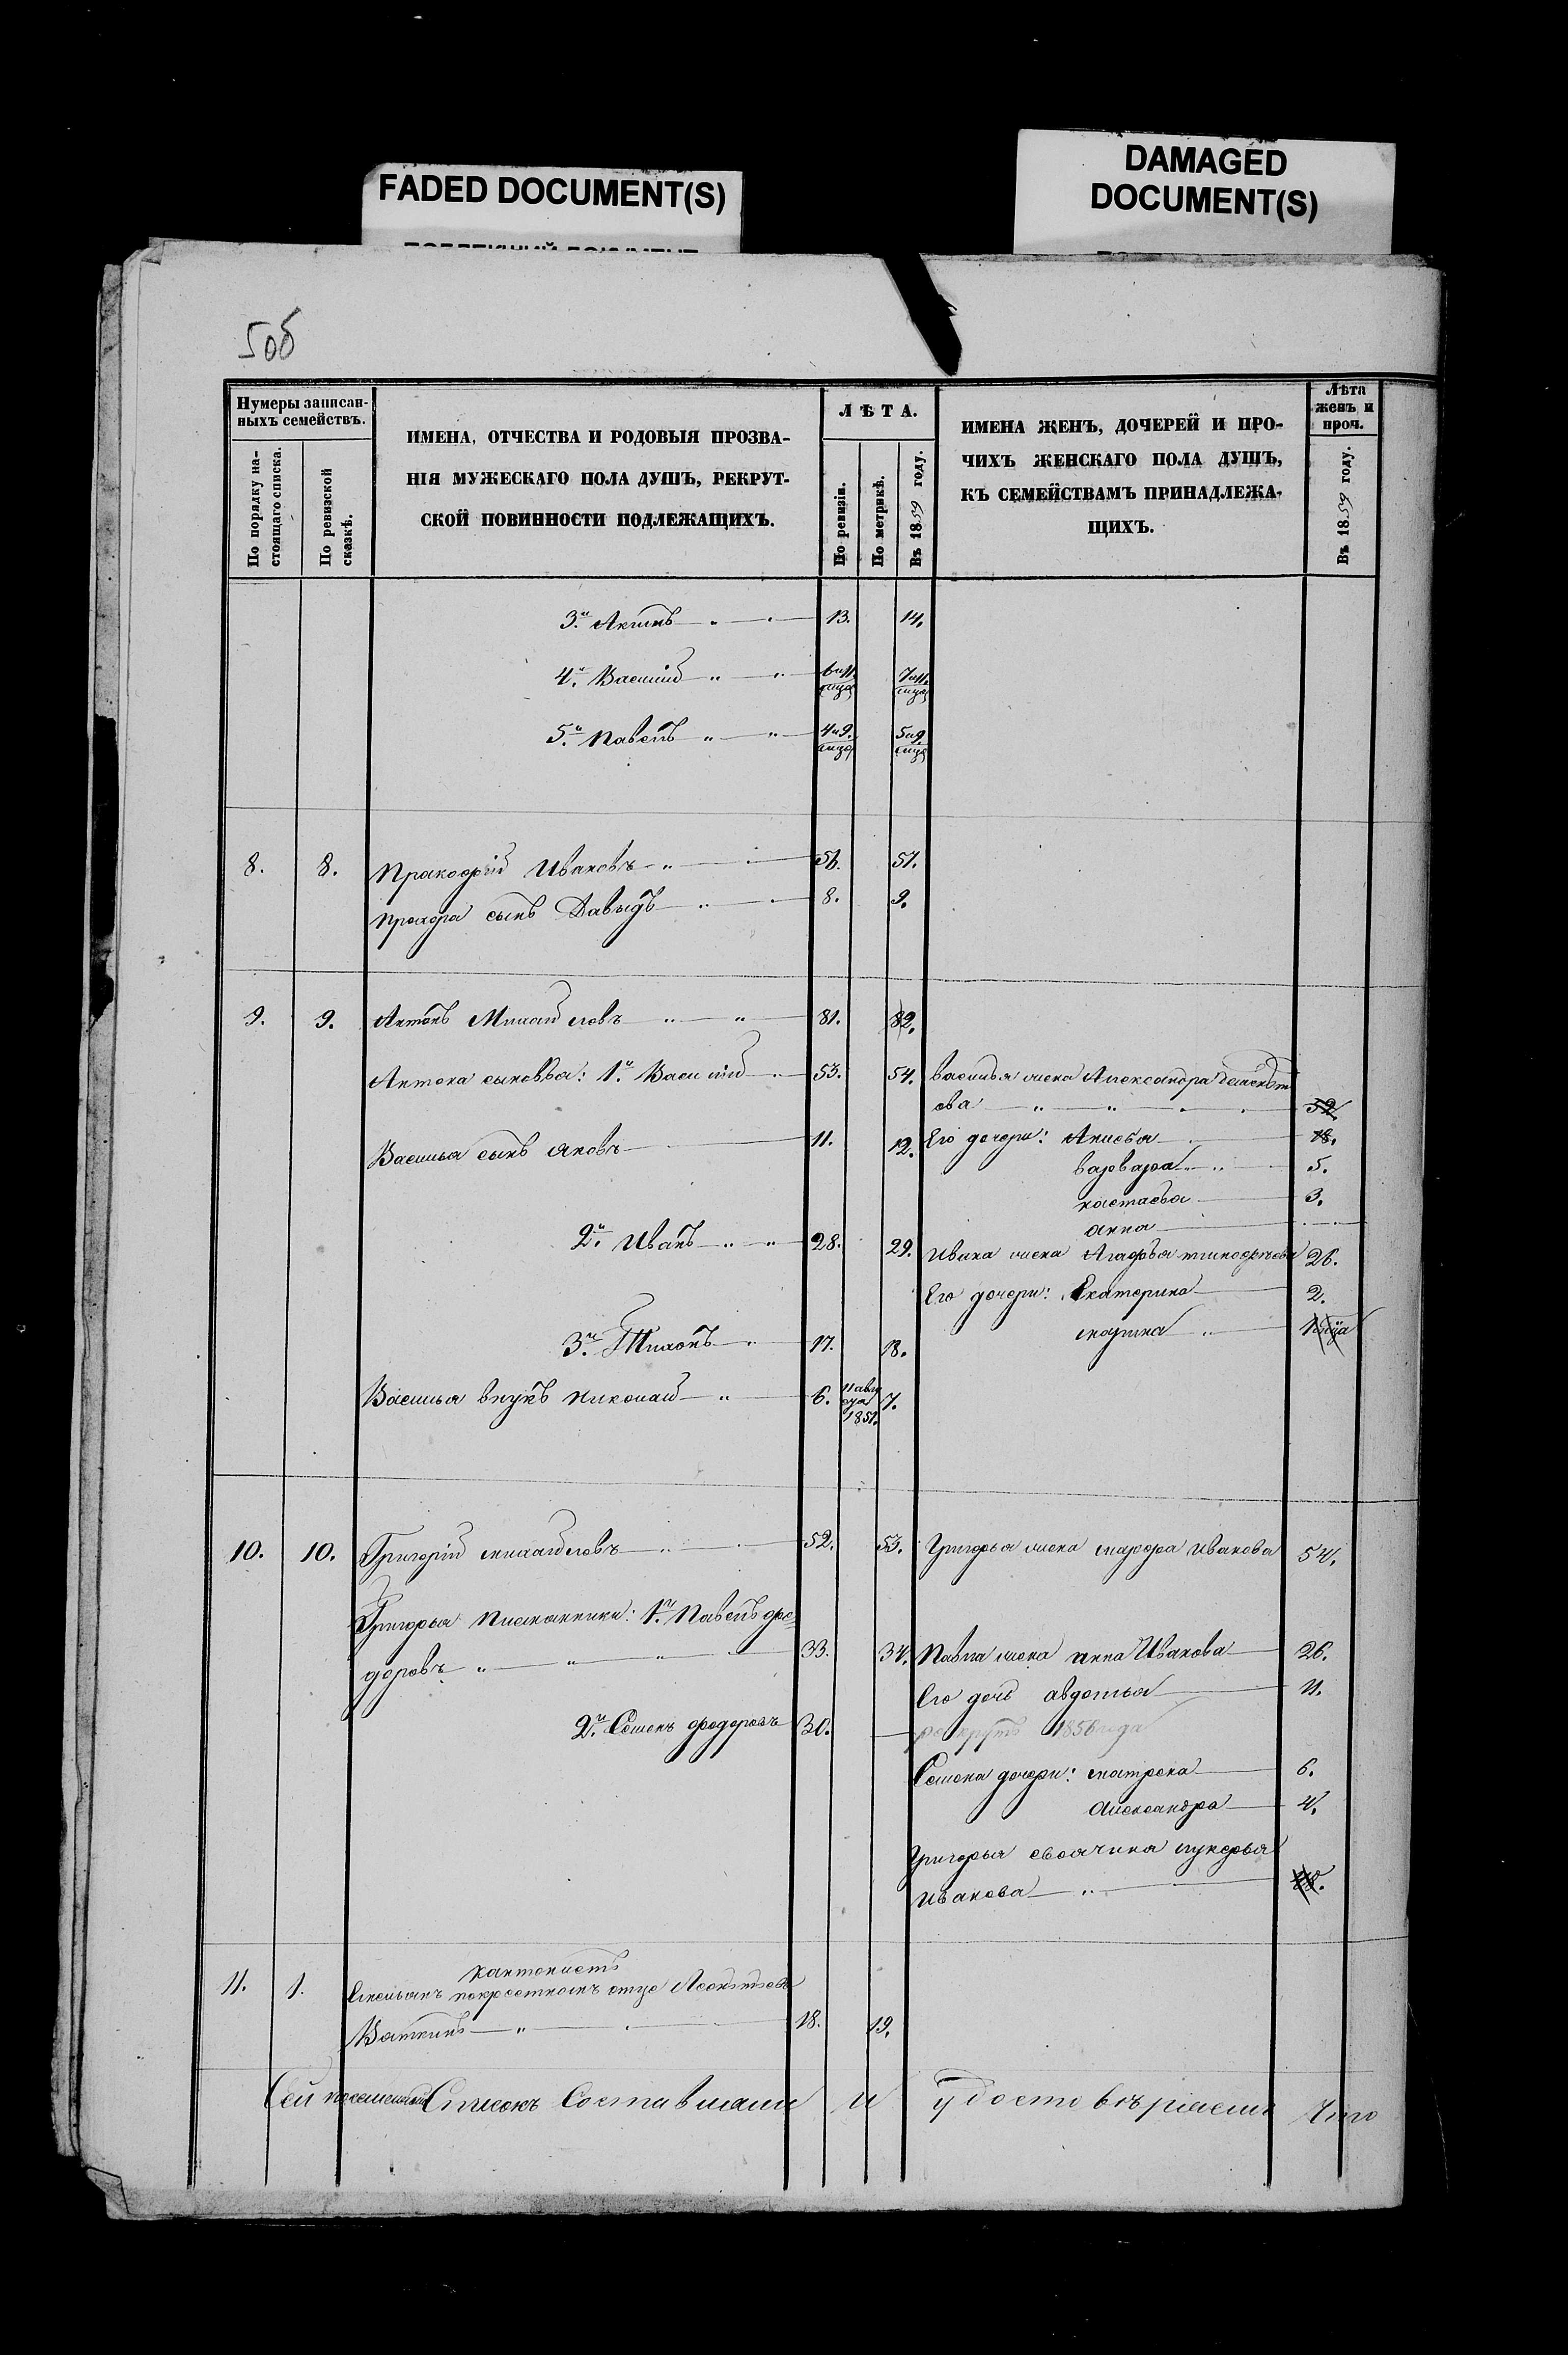 FADED DOCUMENT(S)
DAMAGED
DOCUMENT(S)
5об
Нумеры записан-
ныхъ семействъ.
По порядку на-
стоящаго списка.
По ревизской
сказкѣ.
ИМЕНА, ОТЧЕСТВА И РОДОВЫЯ ПРОЗВА-
НІЯ МУЖЕСКАГО ПОЛА ДУШЪ, РЕКРУТ-
СКОЙ ПОВИННОСТИ ПОДЛЕЖАЩИХЪ.
ЛѢТА.
По ревизіи.
По метрикѣ.
Въ 1859 году.
ИМЕНА ЖЕНЪ, ДОЧЕРЕЙ И ПРО-
ЧИХЪ ЖЕНСКАГО ПОЛА ДУШЪ,
КЪ СЕМЕЙСТВАМЪ ПРИНАДЛЕЖА-
ЩИХЪ.
Лѣта
женъ и
проч.
Въ 1859 году.
3й Акимъ 13. 14.
4й Василій 6 и 11. мца 7 и 11. мца
5й Павелъ 4 и 9. мца 5 и 9 мца
8. 8. Пракофій Ивановъ 56. 57.
Прохора сынъ Давыдъ 8. 9.
9. 9. Антонъ Михайловъ 81. 82.
Антона сыновья: 1й Василій 53. 54. Василья жена Александра
ова 52.
Василья сынъ Яковъ 11. 12. Его дочери: Анисья 18.
Варвара 5.
Настасья 3.
Анна
2й Иванъ 28. 29. Ивана жена Агафья Тимофѣева 26.
Его дочери: Екатерина 2.
Марина
3й Тихонъ 17. 18.
Василья внукъ Николай 6. 11 авгу
ста
1851. 7.
10. 10. Григорій Михайловъ 52. 53. Григорья жена Марфа Иванова 54.
Григорья племянники: 1й Павелъ Фе-
доровъ 33. 34. Павла жена Анна Иванова 26.
Его дочь Авдотья 11.
2й Семенъ Федоровъ 30. рекрутъ 1856 года
Семена дочери: Матрена 6.
Александра 4.
Григорья своячина Лукерья
Иванова 88.
11. 1. кантонистъ
Емельянъ покрестномъ отце Леонтьевъ
Ваткинъ 18. 19.
Сей посемейный Списокъ Составляли и удостовѣряемъ Что